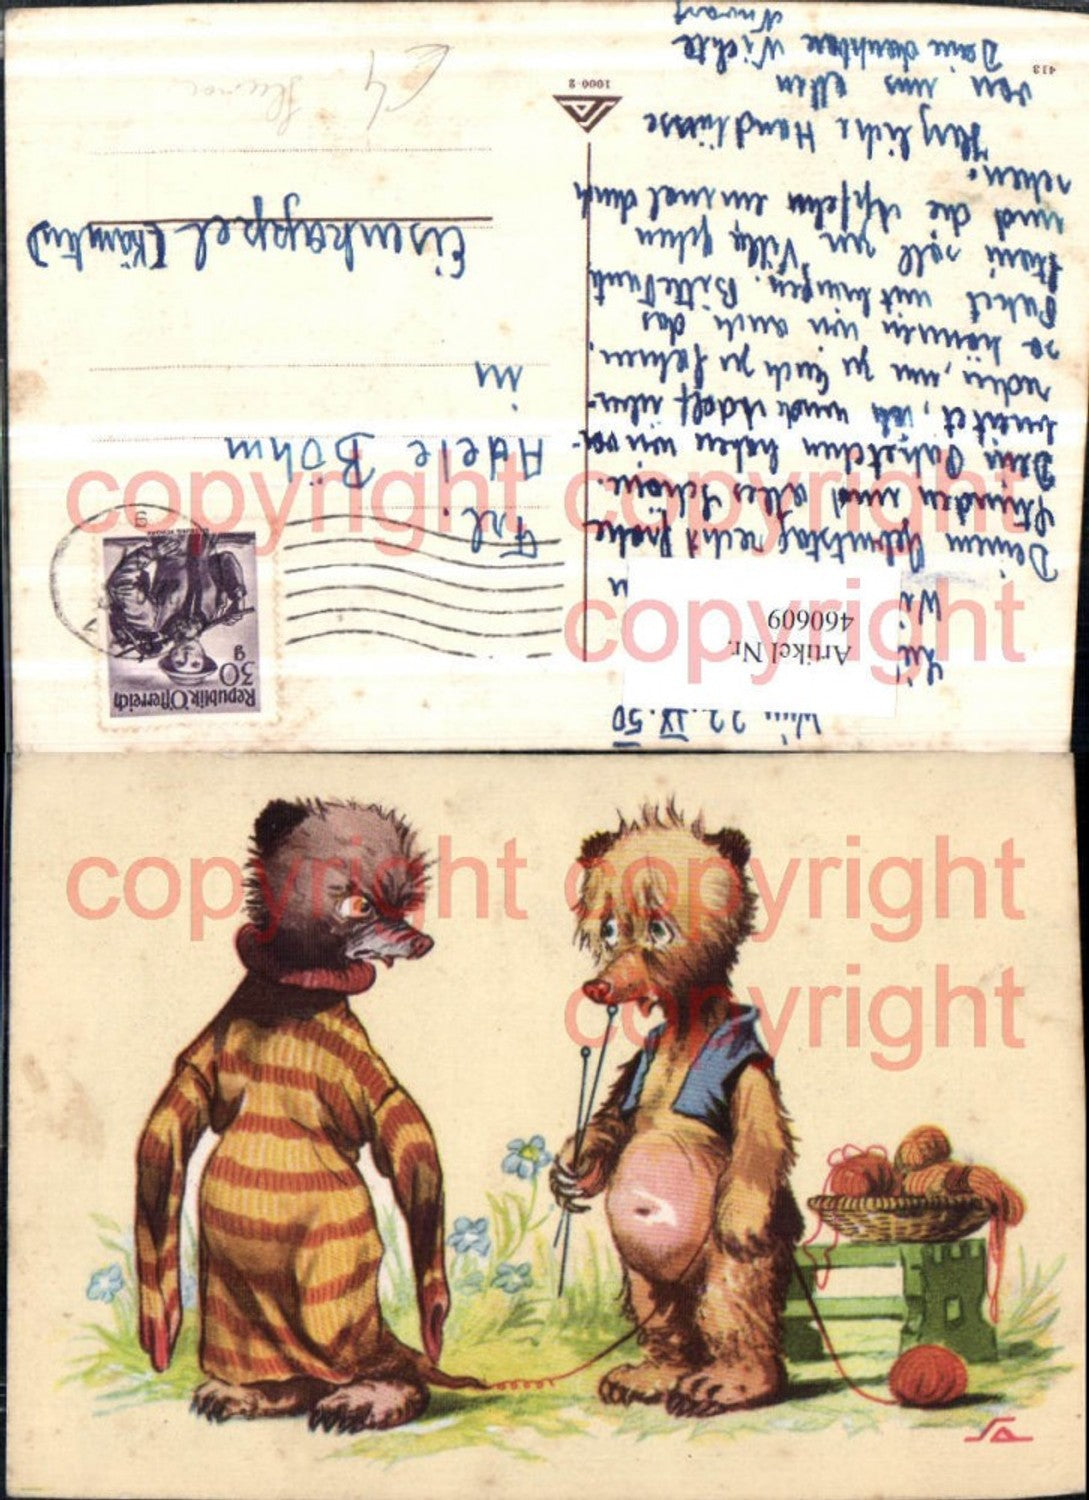 Wien 22.IX.50
Artikel Nr.
460609
Deinem Geburtstag recht frohe
Stunden und alles Schöne.
Dein Paketchen haben wir vor-
bereitet, ich und Adolf
nun zu Euch zu fahren,
so können wir auch das
Paket mitbringen. Bitte Tante
soll in Villa gehen
und die Äpfeln einmal durch
sehen.
Herzliche Handküsse
von uns allen
Deine dankbare Nichte
413
1000-2
Republik Österreich
30 g
Frl.
Adele Böhm
in
Eisenkappel (Kärnten)
copyright
copyright
copyright
copyright
copyright
copyright
copyright